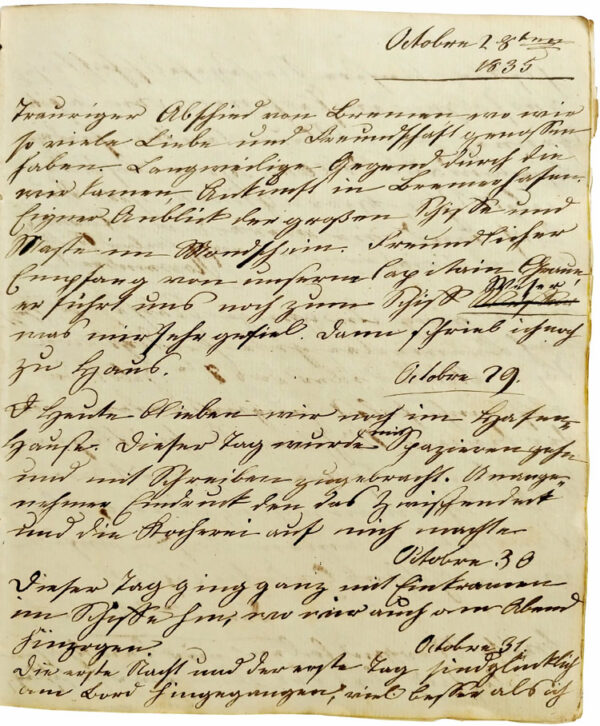 Octobre 28ten
1835
Trauriger Abschied von Bremen wo wir
so viele Liebe und Freundschaft genossen
haben. Langweilige Gegend durch die
wir kamen, Ankunft in Bremerhafen.
Eigner Anblick der großen Schiffe und
Maste im Mondschein. Freundlicher
Empfang von unserm Capitain
er führt uns noch zum Schiff
was mir sehr gefiel. Dann schrieb ich noch
zu Haus.
Octobre 29.
Heute blieben wir noch im Hafen
Hause. Dieser Tag wurde mit Spazieren gehn
und mit Schreiben zugebracht. Unange-
nehmer Eindruck den das Zwischendeck
und die Kocherei auf mich machte
Octobre 30
Dieser Tag ging ganz mit Einkramen
im Schiffe hin, wo wir auch am Abend
hinzogen.
Octobre 31
Die erste Nacht und der erste Tag sind glücklich
am Bord hingegangen, viel besser als ich